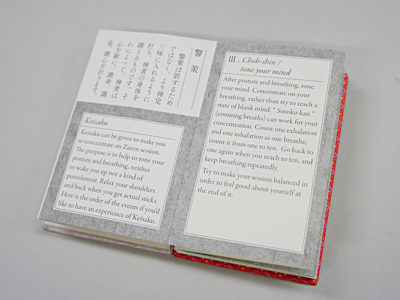 警策
警策は罰するため
ではなく、より禅定
三昧に入れるように
打ち、禅者の身体を
調えるものです。そ
れによって、禅者は
心を新に、調身、調
息、調心を計ります。
Keisaku
Keisaku can be given to make you
re-concentrate on Zazen session.
The purpose is to help to tone your
posture and breathing, neither
to wake you up nor a kind of
punishment. Relax your shoulders
and back when you get actual sticks.
Here is the order of the events if you'd
like to have an experience of Keisaku.
III . Choh-shin /
tone your mind
After posture and breathing, tone
your mind. Concentrate on your
breathing, rather than try to reach a
state of blank mind. " Susoku-kan "
(counting breaths) can work for your
concentration. Count one exhalation
and one inhalation as one breathe,
count it from one to ten. Go back to
one again when you reach to ten, and
keep breathing repeatedly.
Try to make your session balanced in
order to feel good about yourself at
the end of it.